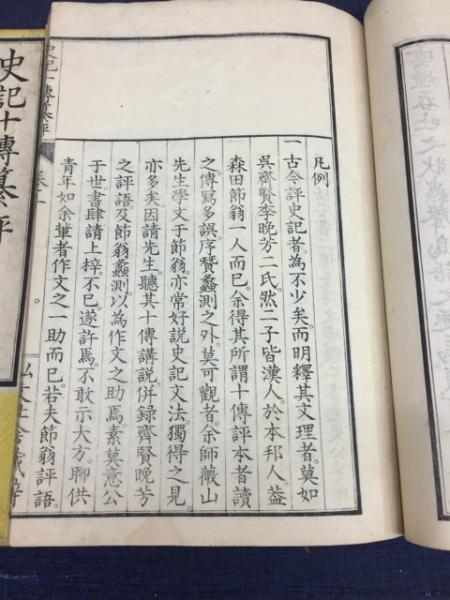 凡例
一古今評史記者。為不少矣。而明釋其文理者。莫如
吳齊賢李晩芳二氏。然二子皆漢人。於本邦人。葢
森田節翁一人而已。余得其所謂十傳評本者讀
之。傳寫多誤。序贊蠡測之外。莫可觀者。余師薇山
先生學文于節翁。亦常好說史記文法。獨得之見
亦多矣。因請先生。聽其十傳講說。併録齊賢晩芳
之評語。及節翁蠡測。以為作文之助焉。素莫意公
于世。書肆請上梓。不已。遂許焉。不敢示大方。聊供
青年如余輩者作文之一助而已。若夫節翁評語。
史記十傳纂評
卷一
史記十傳纂評